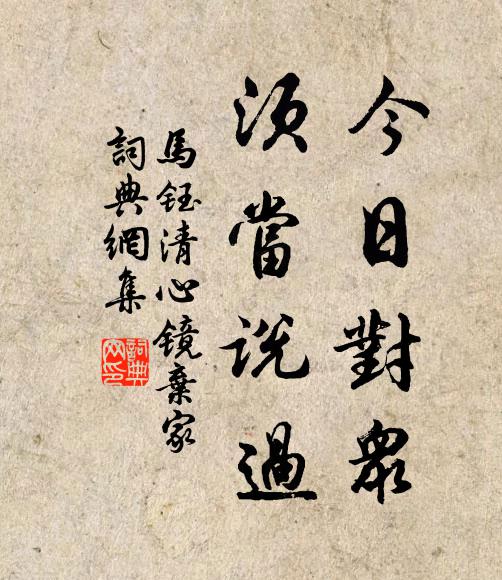 今日對眾
須當說過
馬鈺清心镜棄家
詞典網集
詞典网印